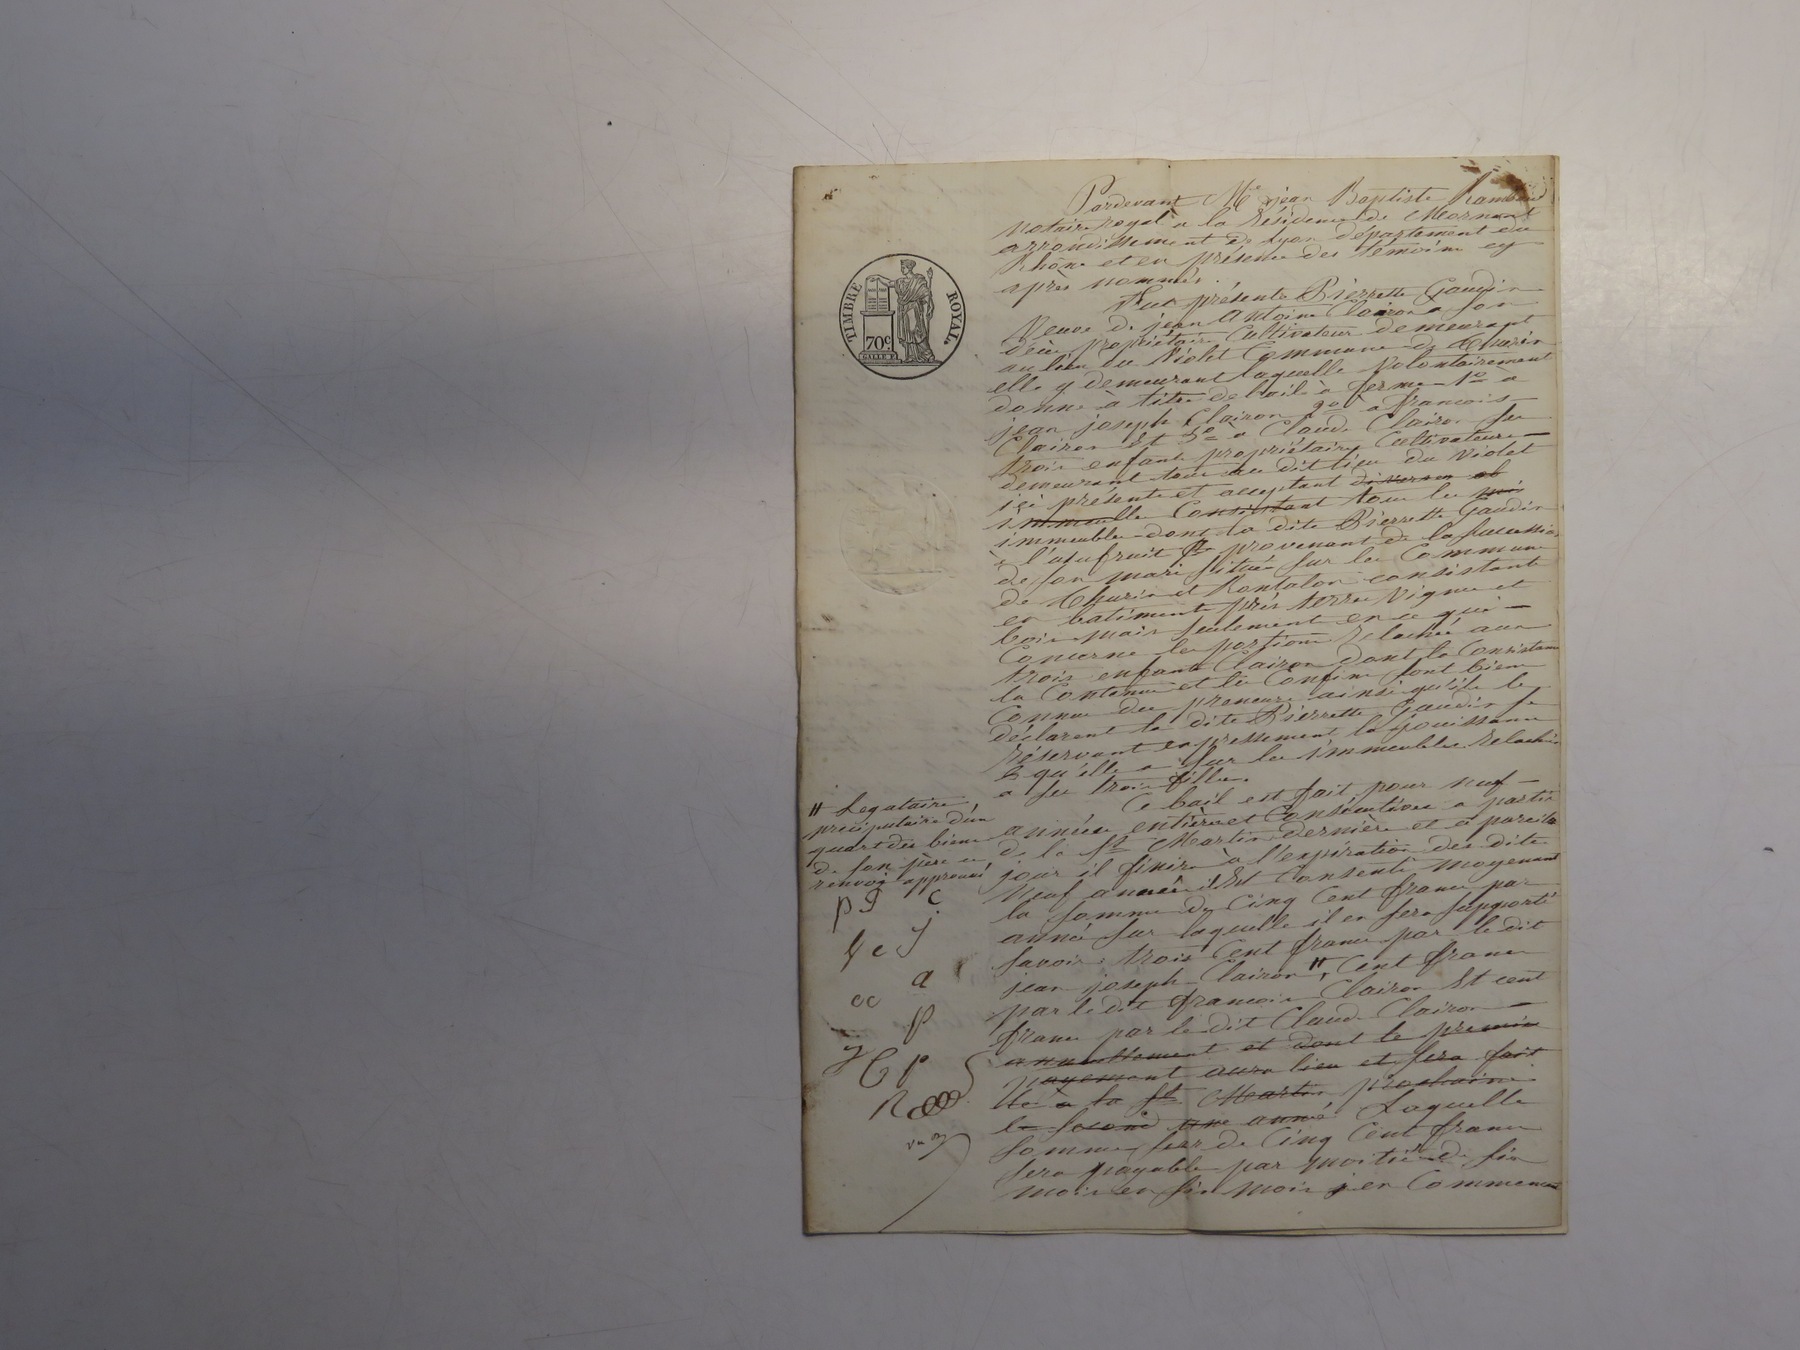 Pardevant Me jean Baptiste Rambaud
notaire royal a la résidence de Mornant
arrondissement de Lyon département du
Rhône et en présence des témoins cy
après nommés.
TIMBRE ROYAL.
70c
Fut présente Pierrette Gaudin
Veuve de jean Antoine Clairon a son
décès propriétaire Cultivateur demeurant
au lieu du Violet Commune de Thurin
elle y demeurant laquelle Volontairement
donne à titre de bail à ferme 1o à
jean joseph Clairon 2o à francois
Clairon Et 3o a Claude Clairon ses
trois enfants propriétaires Cultivateurs
demeurant tous au dit lieu du Violet
ici présents et acceptant divers
immeubles Consistant tous les
immeubles dont la dite Pierrette Gaudin
à l'usufruit provenant de la succession
de son mari situés sur les Communes
de Thurin et Rontalon consistant
en batiments prés terres Vignes et
bois mais seulement en ce qui
Concerne les portions relachées aux
trois enfants Clairon dont la Consistance
la Contenue et les Confins sont bien
Connus des preneurs ainsi qu'ils le
déclarent la dite Pierrette Gaudin se
réservant expressement la jouissance
qu'elle a sur les immeubles relachés
a ses trois filles.
Ce bail est fait pour neuf
années entières et Consécutives a partir
de la St Martin dernière et a pareils
jour il finira à l'expiration des dites
Neuf années il Est Consenti moyenant
la somme de Cinq Cent francs par
année sur laquelle il en sera supporté
savoir: trois Cent francs par le dit
jean joseph Clairon #, Cent francs
par le dit francois Clairon Et cent
francs par le dit Claude Clairon
annuellement et dont le premier
payement aura lieu et sera fait
à la St Martin prochaine
le second une année Laquelle
somme de Cinq Cent francs
sera payable par moitié de six
mois en six mois en Commencant
# Legataire
préciputaire d'un
quart des biens
de son père
renvoi approuvé
p g c
j
a
p